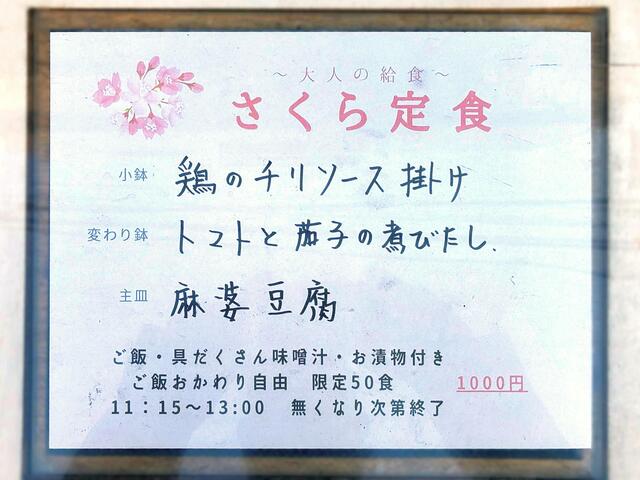 ～大人の給食～
さくら定食
小鉢 鶏のチリソース掛け
変わり鉢 トマトと茄子の煮びたし
主皿 麻婆豆腐
ご飯・具だくさん味噌汁・お漬物付き
ご飯おかわり自由 限定50食 1000円
11：15～13:00 無くなり次第終了